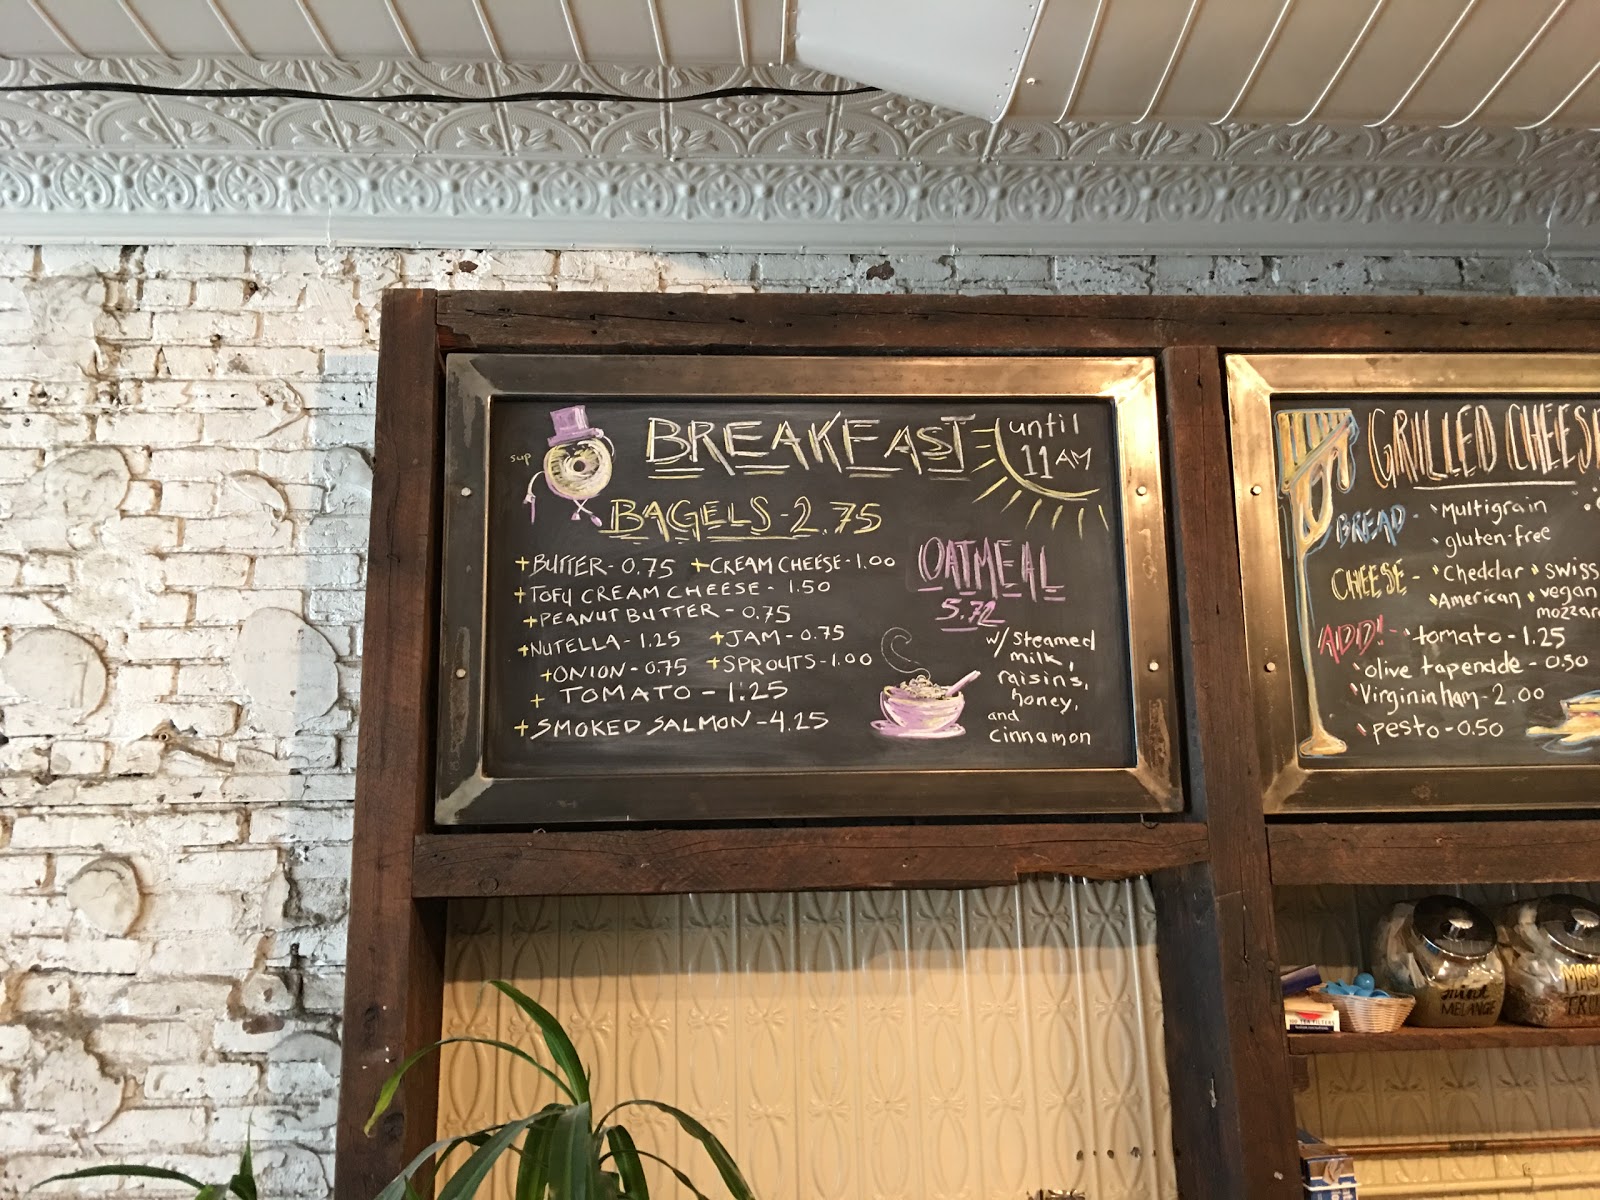 sup
BREAKFAST
until
11AM
BAGELS-2.75
+BUTTER-0.75 +CREAM CHEESE-1.00
+TOFU CREAM CHEESE - 1.50
+PEANUT BUTTER - 0.75
+NUTELLA-1.25 +JAM-0.75
+ONION-0.75 +SPROUTS-1.00
+ TOMATO - 1.25
+SMOKED SALMON-4.25
OATMEAL
5.72
w/ steamed
milk,
raisins,
honey,
and
cinnamon
GRILLED CHEESE
BREAD - Multigrain
gluten-free
CHEESE - Cheddar swiss
American vegan
ADD! - tomato-1.25
olive tapenade - 0.50
Virginin ham-2.00
pesto-0.50
MELANGE